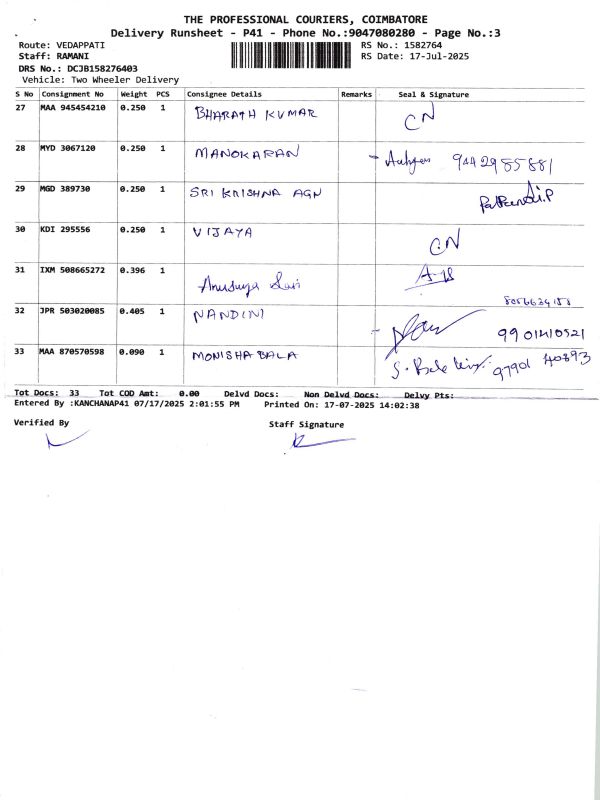 THE PROFESSIONAL COURIERS, COIMBATORE
Delivery Runsheet - P41 - Phone No.:9047080280 - Page No.:3
Route: VEDAPPATI RS No.: 1582764
Staff: RAMANI RS Date: 17-Jul-2025
DRS No.: DCJB158276403
Vehicle: Two Wheeler Delivery
S No Consignment No Weight PCS Consignee Details Remarks Seal & Signature
27 MAA 945454210 0.250 1 BHARATH KUMAR CN
28 MYD 3067120 0.250 1 MANOKARAN 9442985881
29 MGD 389730 0.250 1 SRI KRISHNA AGN
30 KDI 295556 0.250 1 VIJAYA CN
31 IXM 508665272 0.396 1 Anusuya
32 JPR 503020085 0.405 1 NANDINI 9901410521
33 MAA 870570598 0.090 1 MONISHA BALA 97901 40893
Tot Docs: 33 Tot COD Amt: 0.00 Delvd Docs: Non Delvd Docs: Delvy Pts:
Entered By :KANCHANAP41 07/17/2025 2:01:55 PM Printed On: 17-07-2025 14:02:38
Verified By Staff Signature